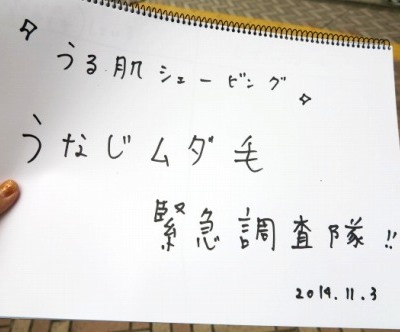 うる肌シェービング
うなじムダ毛
緊急調査隊!!
2014.11.3